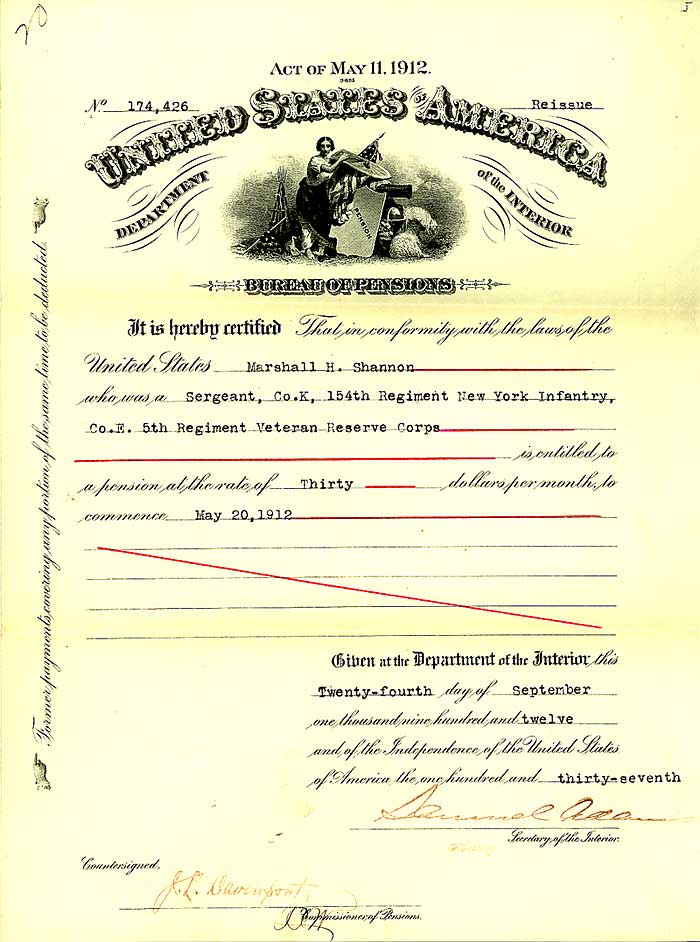 20
5
ACT OF MAY 11, 1912.
3-405
No. 174,426
Reissue
UNITED STATES OF AMERICA
DEPARTMENT of the INTERIOR
PENSION
BUREAU OF PENSIONS
It is hereby certified That in conformity with the laws of the
United States Marshall H. Shannon
who was a Sergeant, Co.K, 154th Regiment New York Infantry,
Co.E. 5th Regiment Veteran Reserve Corps
is entitled to
a pension at the rate of Thirty dollars per month, to
commence May 20,1912
Former payments covering any portion of the same time to be deducted.
Given at the Department of the Interior this
Twenty-fourth day of September
one thousand nine hundred and twelve
and of the Independence of the United States
of America the one hundred and thirty-seventh
Samuel Adams
Secretary of the Interior.
Countersigned,
J.L. Davenport,
Commissioner of Pensions.